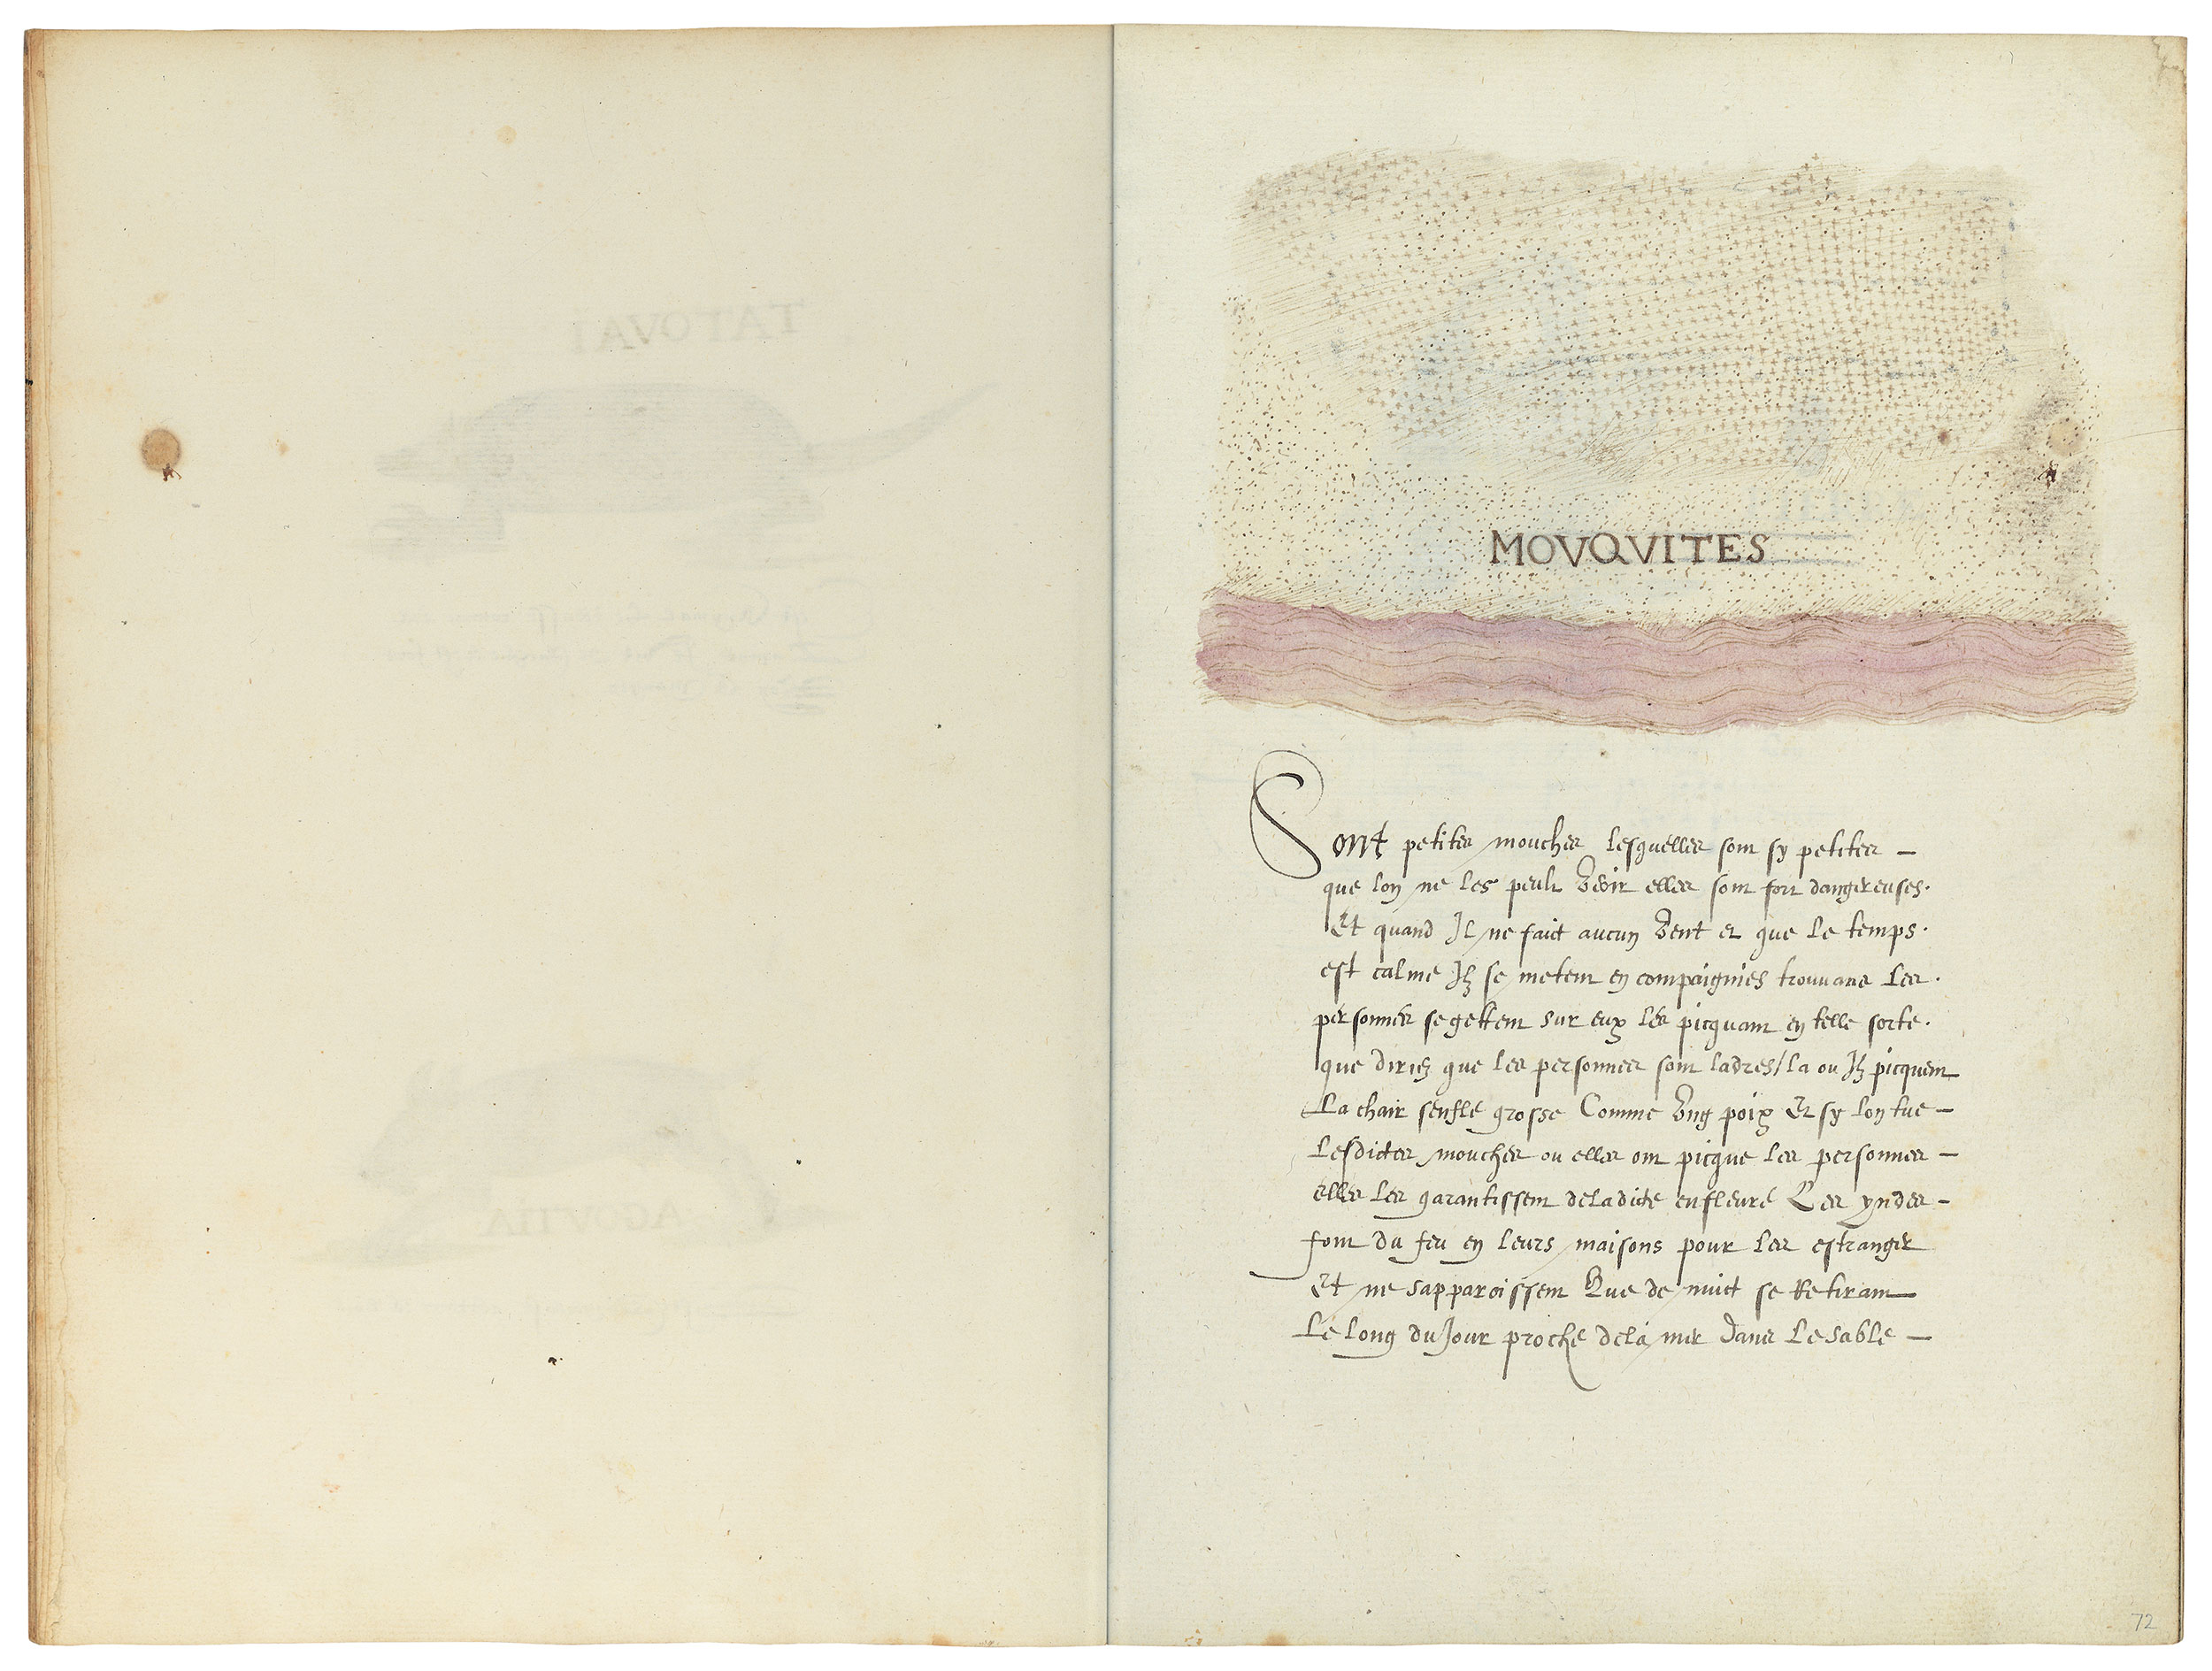 TATOVAI
AGOVTIA
MOVQVITES
Sont petites mouches lesquelles sont sy petites
que lon ne les peult veoir elles sont fort dangereuses.
Et quand Il ne faict aucun vent et que le temps.
est calme Ilz se metent en compaignies trouvans les.
personnes se gettent sur eux les picquant en telle sorte.
que diriez que les personnes sont ladres / la ou Ilz picquent
La chair senfle grosse Comme ung poix Et sy lon tue
Lesdictes mouches ou elles ont picque les personnes
elles les garantissent de ladicte enfleure Les yndes
font du feu en leurs maisons pour les estranger
Et ne sapparoissent Que de nuict se Retirant
Le long du Jour proche de la mer dans Le sable
72